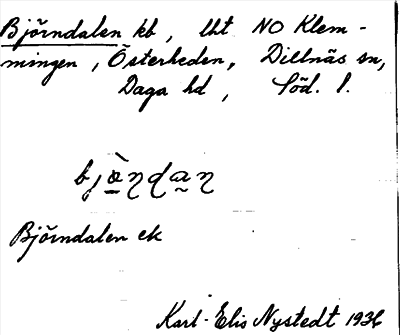 Björndalen kb, lht NO Klem-
mingen, Österheden, Dillnäs sn,
Daga hd, Söd. l.
bjò̱ɳda̰ɳ
Björndalen ek
Karl-Elis Nystedt 1936